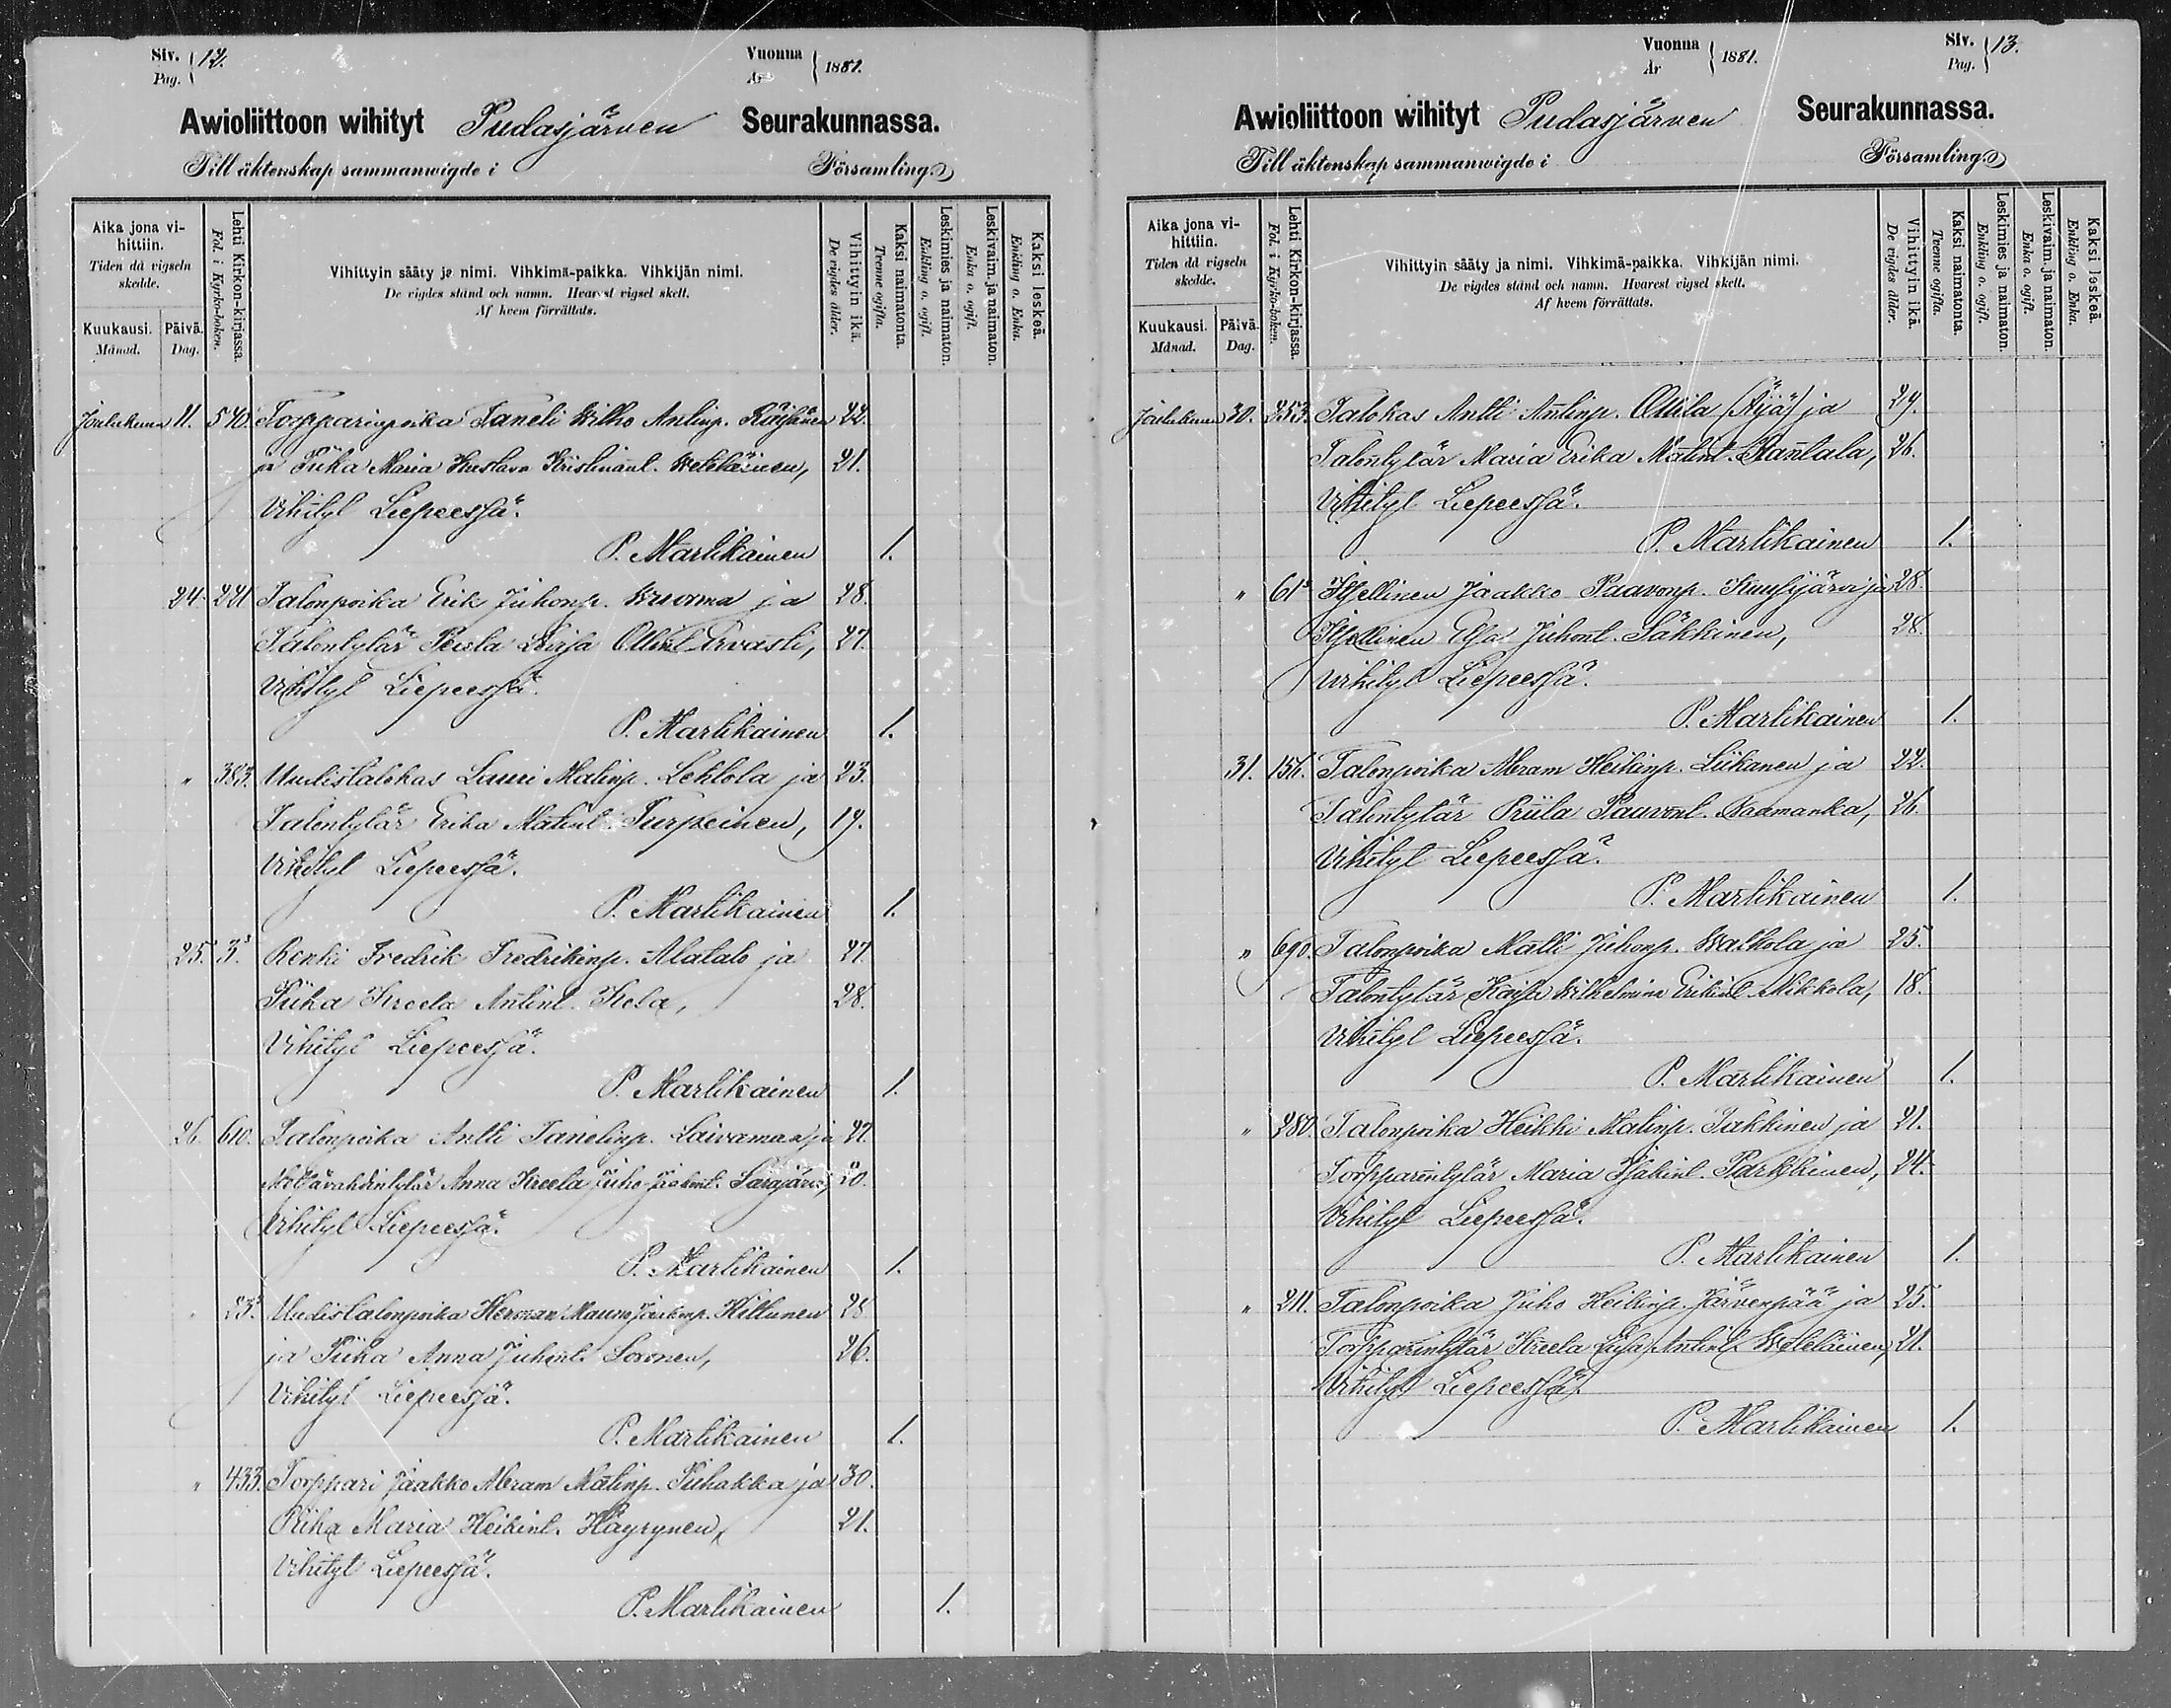 Siv. Pag. 12.
Vuonna År 1881.
Awioliittoon wihityt Pudasjärven Seurakunnassa.
Till äktenskap sammanwigde i Församling.
Aika jona vihittiin. Tiden då vigseln skedde.
Kuukausi. Månad.
Päivä. Dag.
Lehti Kirkon-kirjassa. Fol. i Kyrko-boken.
Vihittyin sääty ja nimi. Vihkimä-paikka. Vihkijän nimi.
De vigdes stånd och namn. Hvarest vigsel skett.
Af hvem förrättats.
Vihittyin ikä. De vigdes ålder.
Kaksi naimatonta. Tvenne ogifta.
Leskimies ja naimaton. Enkling o. ogift.
Leskivaim. ja naimaton. Enka o. ogift.
Kaksi leskeä. Enkling o. Enka.
Joulukuun 11. 540. Torpparinpoika Taneli Wilho Antinp. 22.
ja Piika Maria Kustava Kristiinant. Weteläinen, 21.
Vihityt Liepeessä.
P. Martikainen 1.
24. 221 Talonpoika Erik Juhonp. Wuorma ja 28.
Talontytär Ollint. Ervasti, 27.
Vihityt Liepeessä.
P. Martikainen 1.
" 383. Uudistalokas Lauri Matinp. Lehtola ja 23.
Talontytär Erika Matint. Turpeinen, 19.
Vihityt Liepeessä.
P. Martikainen 1.
25. 3. Renki Fredrik Fredrikinp. Alatalo ja 27.
Piika Kreeta Antint. Kela, 28.
Vihityt Liepeessä.
P. Martikainen 1.
26. 610. Talonpoika Antti Tanelinp. Laivamaa ja 22.
Metsävahdintytär Anna Kreeta Juho Jaakint. Sarajärvi, 20.
Vihityt Liepeessä.
P. Martikainen 1.
" 23. Uudistalonpoika Herman Mauno Jaakonp. Hiltunen 28.
ja Piika Anna Juhont. Soronen, 26.
Vihityt Liepeessä.
P. Martikainen 1.
" 433. Torppari Jaakko Abram Matinp. Puhakka ja 30.
Piika Maria Heikint. Häyrynen, 21.
Vihityt Liepeessä.
P. Martikainen 1.
Vuonna År 1881.
Siv. Pag. 13.
Awioliittoon wihityt Pudasjärven Seurakunnassa.
Till äktenskap sammanwigde i Församling.
Aika jona vihittiin. Tiden då vigseln skedde.
Kuukausi. Månad.
Päivä. Dag.
Lehti Kirkon-kirjassa. Fol. i Kyrko-boken.
Vihittyin sääty ja nimi. Vihkimä-paikka. Vihkijän nimi.
De vigdes stånd och namn. Hvarest vigsel skett.
Af hvem förrättats.
Vihittyin ikä. De vigdes ålder.
Kaksi naimatonta. Tvenne ogifta.
Leskimies ja naimaton. Enkling o. ogift.
Leskivaim. ja naimaton. Enka o. ogift.
Kaksi leskeä. Enkling o. Enka.
Joulukuun 30. 253. Talokas Antti Antinp. Ollila (Äijä) ja 29.
Talontytär Maria Erika Matint. Rantala, 26.
Vihityt Liepeessä.
P. Martikainen 1.
" 61 Itsellinen Jaakko Paavonp. Kuusijärvi ja 28.
Itsellinen Elsa Juhont. Säkkinen, 28.
Vihityt Liepeessä.
P. Martikainen 1.
31. 156. Talonpoika Abram Heikinp. Liikanen ja 22.
Talontytär Priita Paavont. Naamanka, 26.
Vihityt Liepeessä.
P. Martikainen 1.
" 690. Talonpoika Matti Juhonp. Walkola ja 25.
Talontytär Kaisa Wilhelmina Erikint. Mikkola, 18.
Vihityt Liepeessä.
P. Martikainen 1.
" 280. Talonpoika Heikki Matinp. Takkinen ja 21.
Torpparintytär Maria Isakint. Parkkinen, 24.
Vihityt Liepeessä.
P. Martikainen 1.
" 211. Talonpoika Juho Heikinp. Järvenpää ja 25.
Torpparintytär Kreeta Antint. Weteläinen, 21.
Vihityt Liepeessä.
P. Martikainen 1.